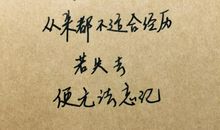 从来都不适合经历
若失去
便无法忘记